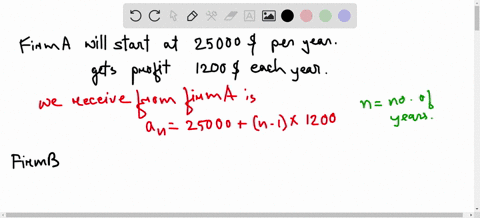 FirmA will start at 25000 $ per year.
gets profit 1200 $ each year.
we receive from firmA is
aₙ = 25000 + (n-1) × 1200
n = no. of years.
FirmB